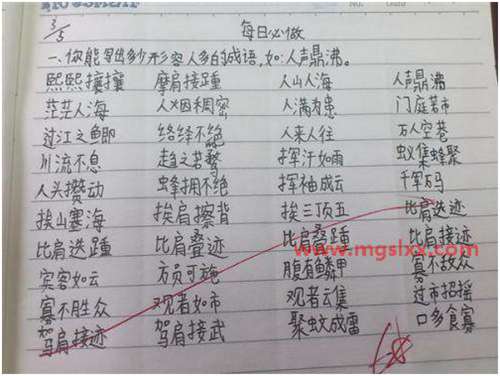 3/5
每日必做
一、你能写出多少形容人多的成语,如:人声鼎沸。
熙熙攘攘 摩肩接踵 人山人海 人声鼎沸
茫茫人海 人烟稠密 人满为患 门庭若市
过江之鲫 络绎不绝 人来人往 万人空巷
川流不息 趋之若鹜 挥汗如雨 蚁集蜂聚
人头攒动 蜂拥不绝 挥袖成云 千军万马
挨山塞海 挨肩擦背 挨三顶五 比肩迭迹
比肩迭踵 比肩叠迹 比肩叠踵 比肩接迹
宾客如云 方员可施 腹背鳞甲 寡不敌众
寡不胜众 观者如市 观者云集 过市招摇
驾肩接迹 驾肩接武 聚蚊成雷 口多食寡
www.mgslxx.com